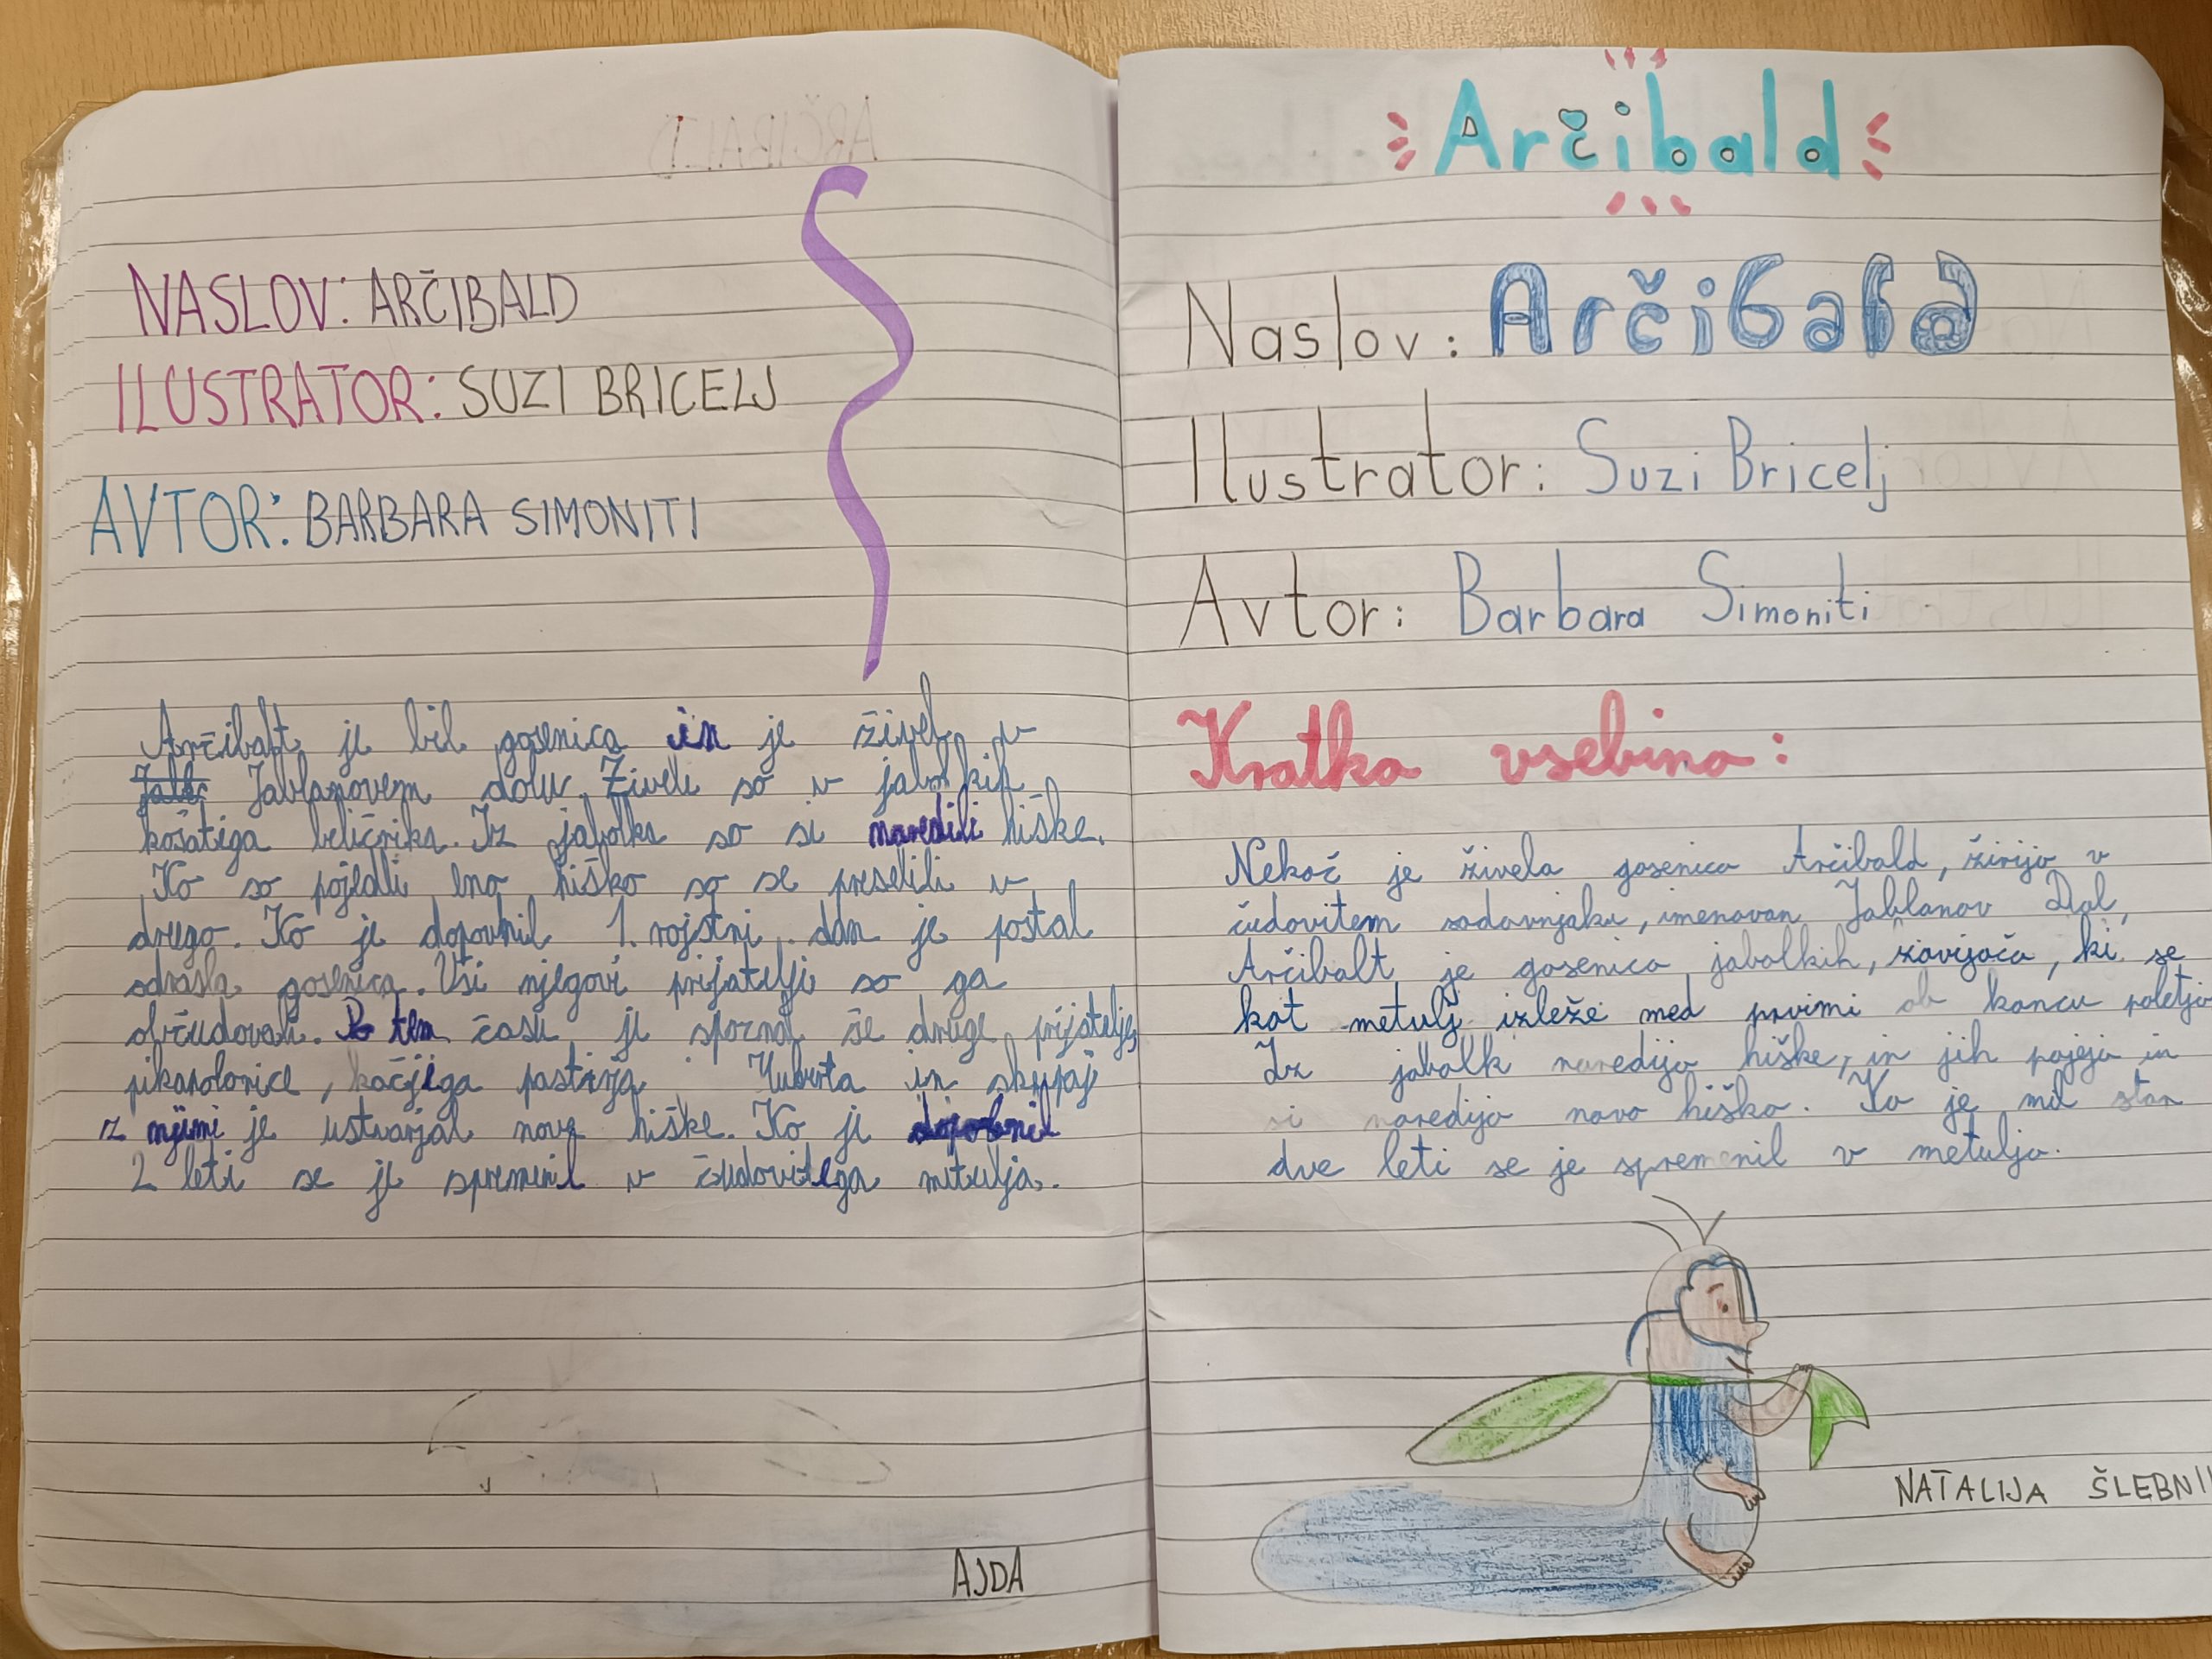 NASLOV: ARČIBALD
ILUSTRATOR: SUZI BRICELJ
AVTOR: BARBARA SIMONITI
Arčibalt je bil gosenica in je živel v
Jablanovem dolu. Živeli so v jabolkih
košatiga beličnika. Iz jabolka so si naredili hiške.
Ko so pojedli eno hiško so se preselili v
drugo. Ko je dopovnil 1. rojstni dan je postal
odrasla gosenica. Vsi njegovi prijatelji so ga
občudovali. Po tem času je spoznal še druge prijatelje,
pikapolonice, kačjega pastirja Huberta in skupaj
z njimi je ustvarjal nove hiške. Ko je dopolnil
2 leti se je spremenil v čudovitega metulja.
AJDA
Arčibald
Naslov: Arčibald
Ilustrator: Suzi Bricelj
Avtor: Barbara Simoniti
Kratka vsebina:
Nekoč je živela gosenica Arčibald, živijo v
čudovitem sadovnjaku, imenovan Jablanov Dol,
Arčibalt je gosenica jabolkih, zavijača, ki se
kot metulj izleže med prvimi ob koncu poletja
Iz jabolk naredijo hiške, in jih pojejo in
si naredijo novo hiško. Ko je mel star
dve leti se je spremenil v metulja.
NATALIJA